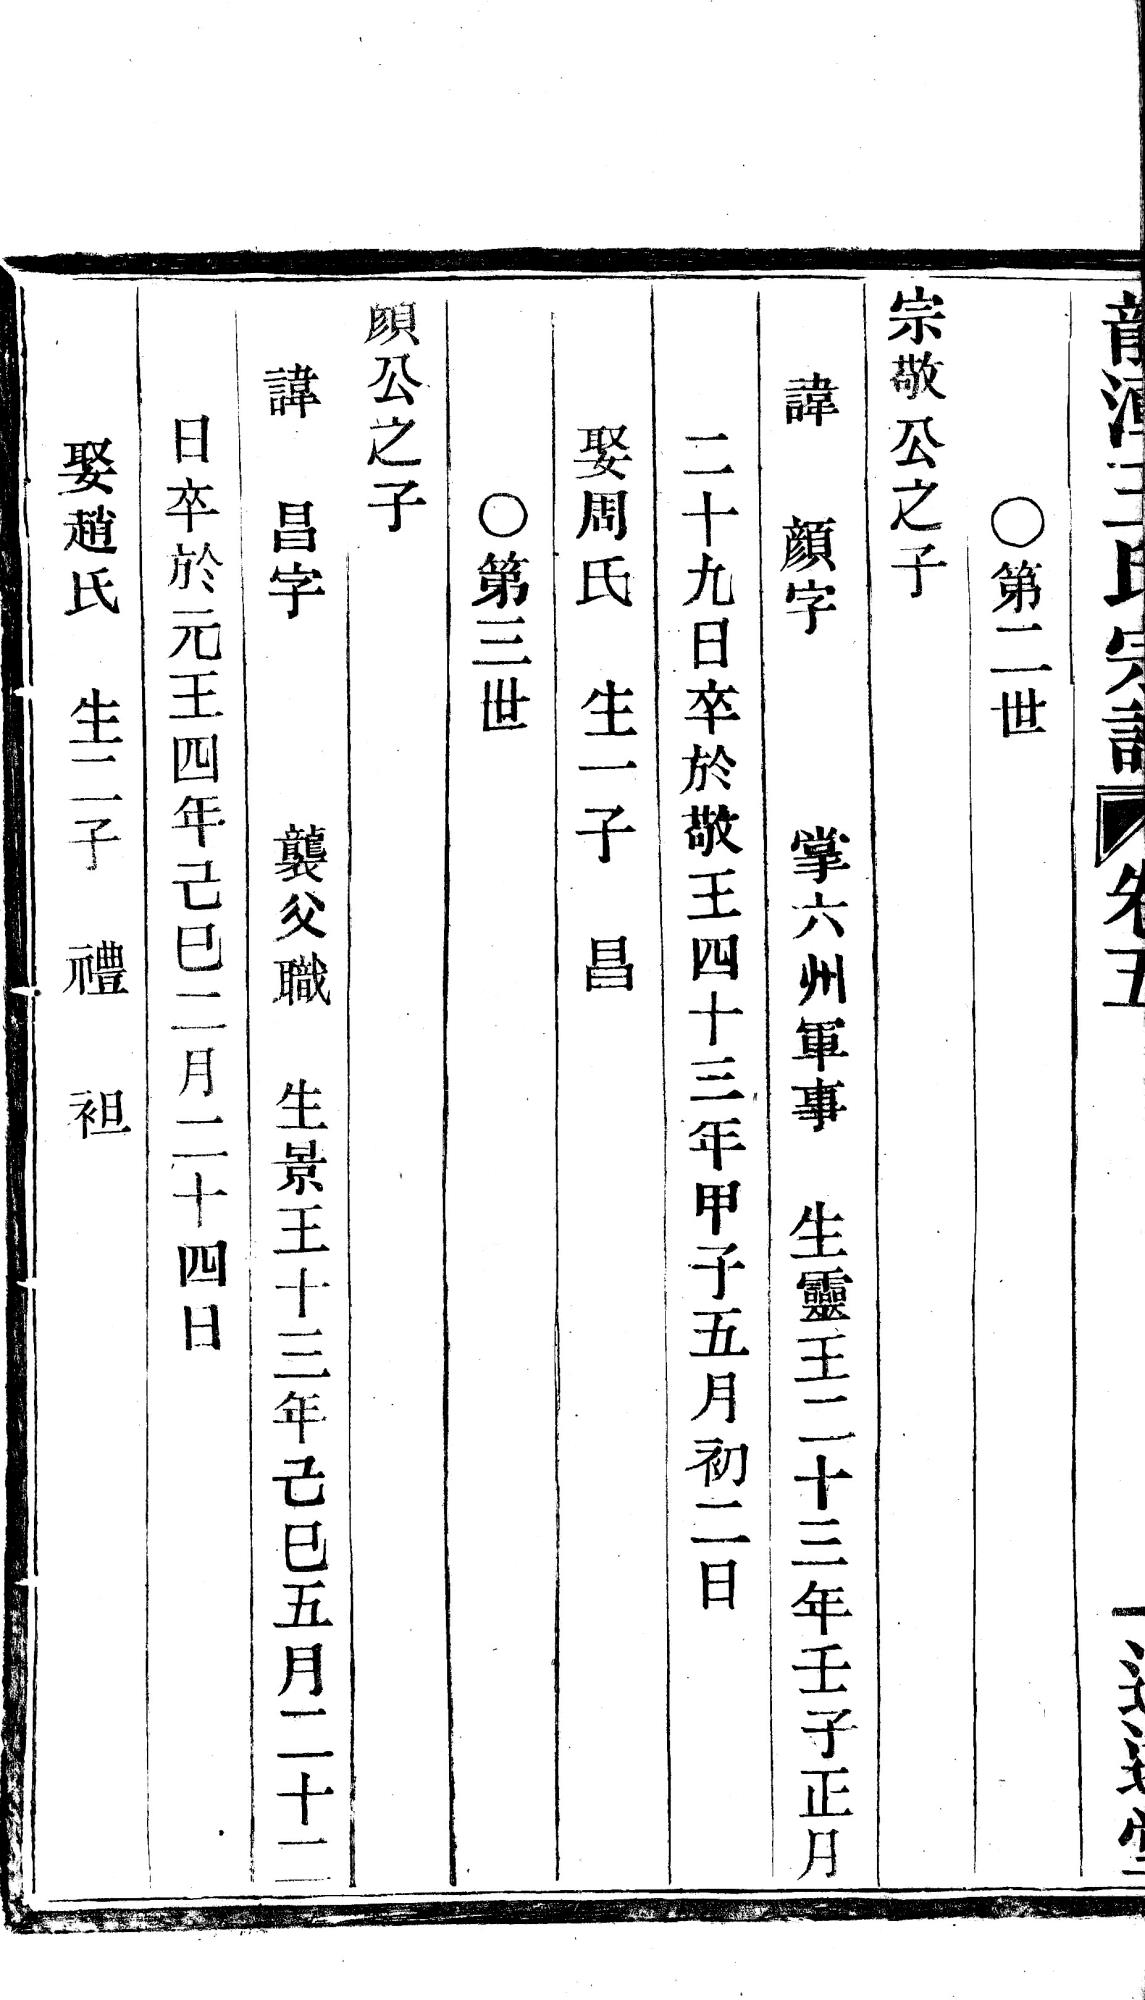 王氏宗譜 卷五 一
○第二世
宗敬公之子
諱 顔字 掌六州軍事 生靈王二十三年壬子正月
二十九日卒於敬王四十三年甲子五月初二日
娶周氏 生一子 昌
○第三世
顔公之子
諱 昌字 襲父職 生景王十三年己巳五月二十二
日卒於元王四年己巳二月二十四日
娶趙氏 生二子 禮 袒